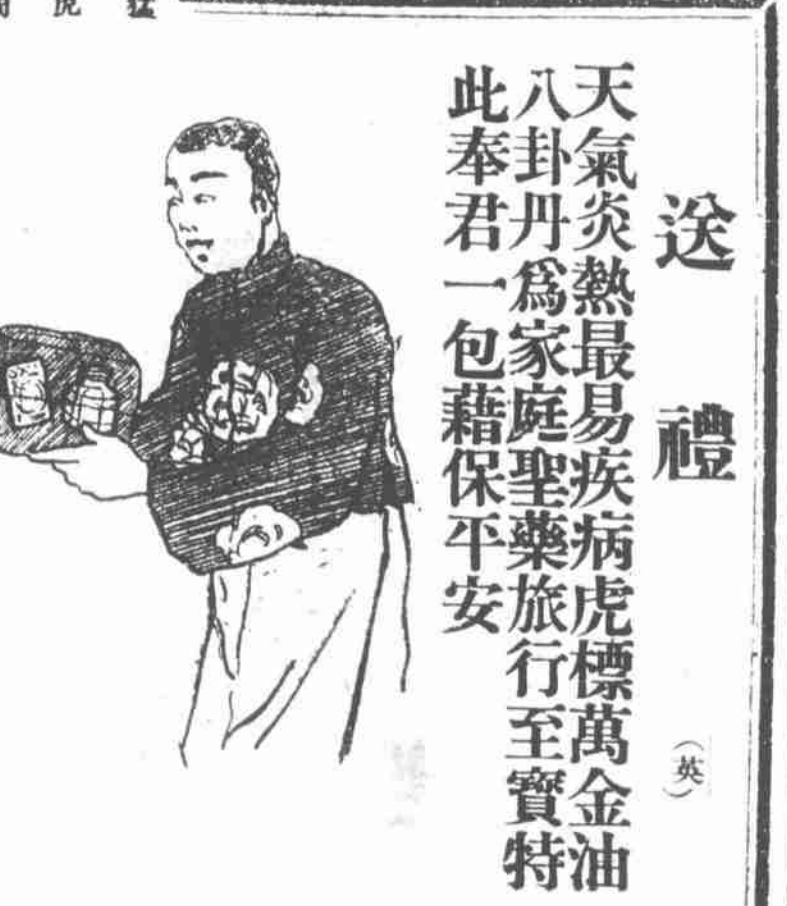 猛虎
送禮
(英)
天氣炎熱最易疾病虎標萬金油
八卦丹爲家庭聖藥旅行至寶特
此奉君一包藉保平安